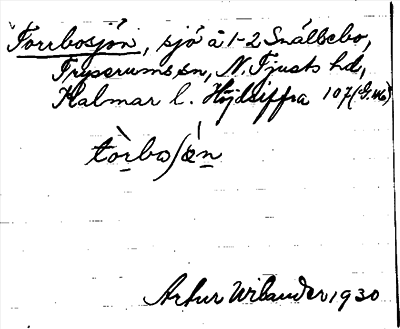 Torrbosjön, sjö å 1-2 Snällebo,
Tryserums sn, N. Tjusts hd,
Kalmar l. Höjdsiffra 107 (G.W6)
tòrboʃǿn
Artur Wilander 1930